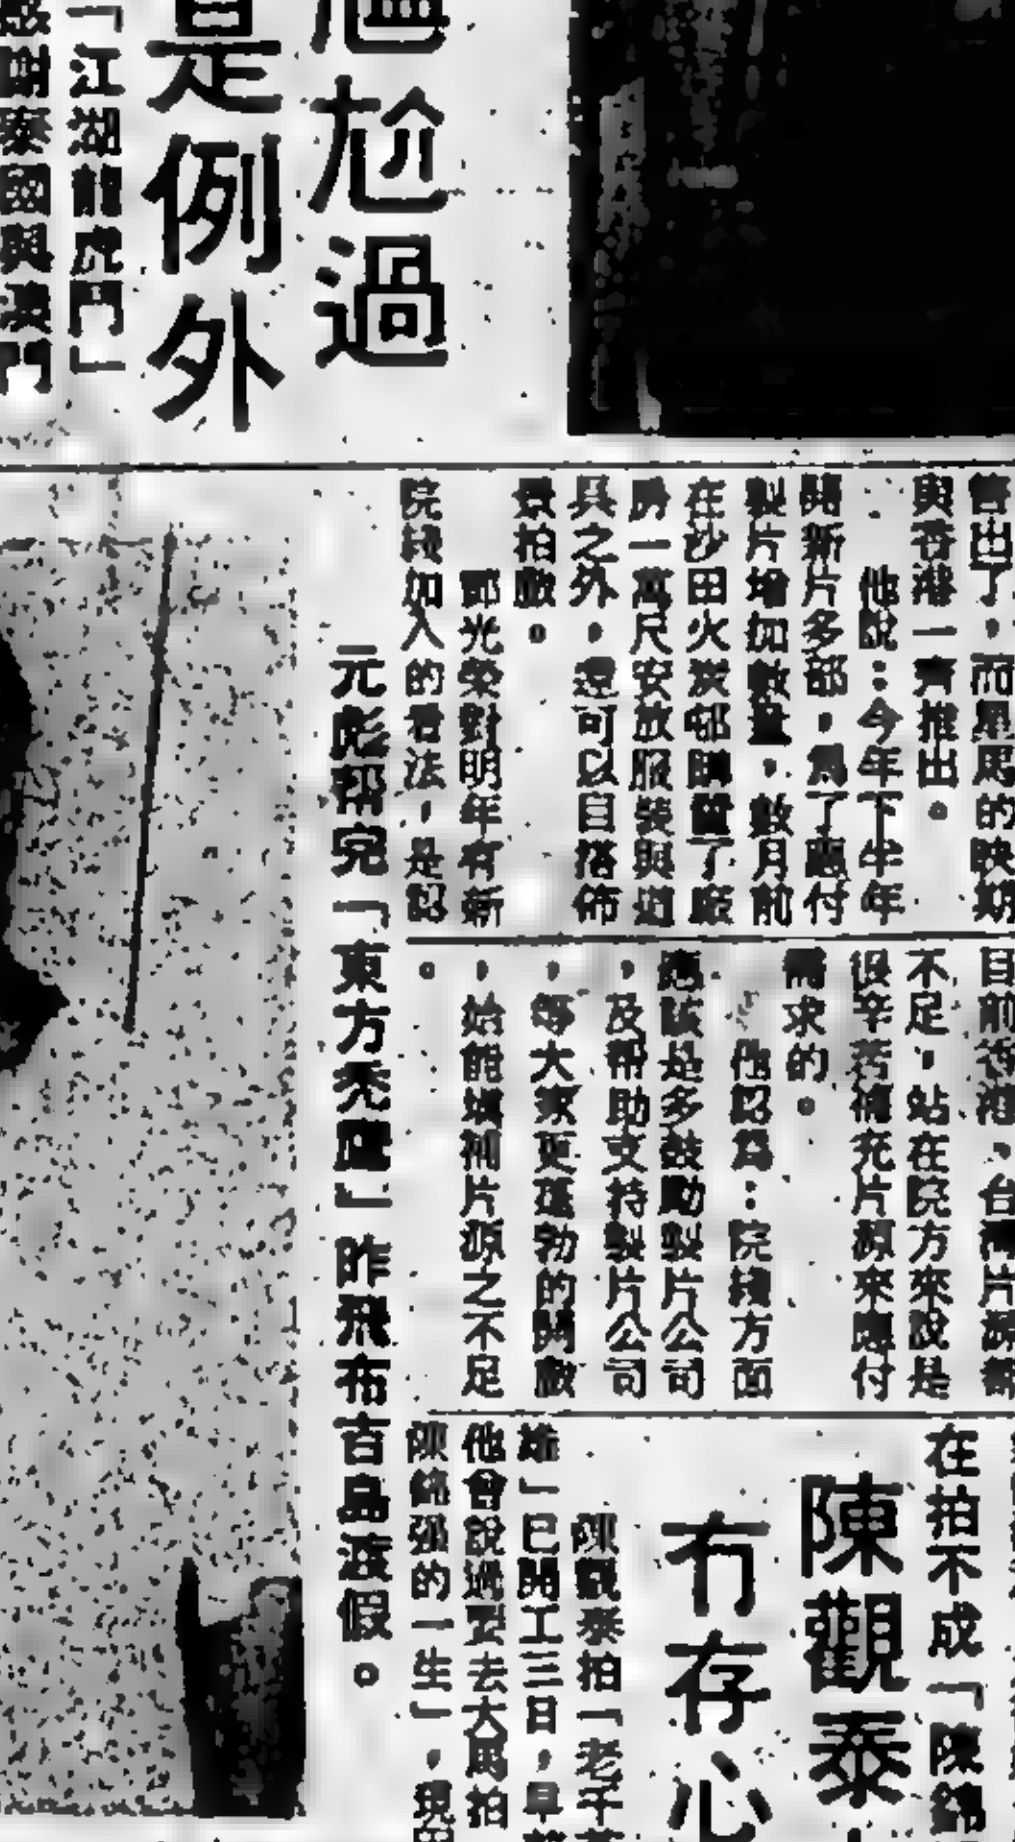 尷尬過
是例外
「江湖龍虎鬥」
感謝泰國與澳門
管出了，而星馬的映期
與香港一齊推出。
他說：今年下半年
開新片多部，為了應付
製片增加數量，數月前
在沙田火炭邨購置了廠
房一萬尺安放服裝與道
具之外，還可以自搭佈
景拍戲。
鄧光榮對明年有新
院綫加入的看法，是認
目前香港、台灣片源都
不足，站在院方來說是
很辛苦補充片源來應付
需求的。
他認為：院綫方面
應該是多鼓勵製片公司
，及幫助支持製片公司
，等大家更蓬勃的開戲
，始能填補片源之不足
。
元彪幫完「東方禿鷹」昨飛布吉島渡假。
在拍不成「陳錦
陳觀泰
冇存心
陳觀泰拍「老千
雄」已開工三日，早
他曾說過要去大馬拍
陳錦強的一生」，現